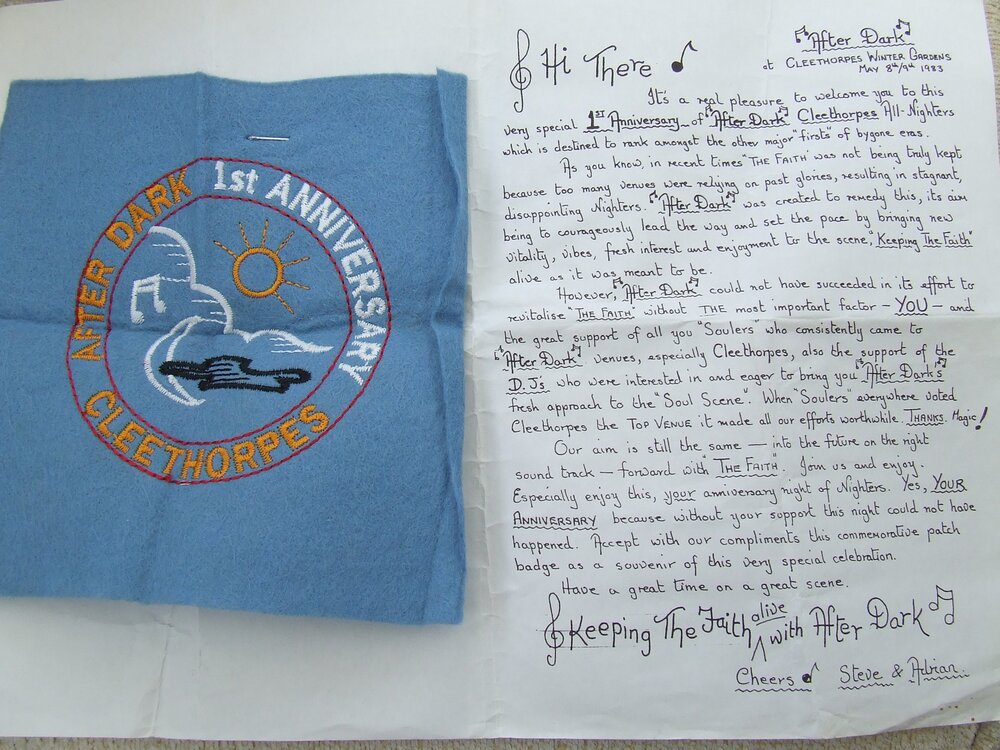 AFTER DARK 1st ANNIVERSARY
CLEETHORPES
"After Dark"
at CLEETHORPES WINTER GARDENS
MAY 8th/9th 1983
Hi There
It's a real pleasure to welcome you to this
very special 1ST Anniversary of "After Dark" Cleethorpes All-Nighters
which is destined to rank amongst the other major "firsts" of bygone eras.
As you know, in recent times "THE FAITH" was not being truly kept
because too many venues were relying on past glories, resulting in stagnant,
disappointing Nighters. "After Dark" was created to remedy this, its aim
being to courageously lead the way and set the pace by bringing new
vitality, vibes, fresh interest and enjoyment to the scene, "Keeping The Faith"
alive as it was meant to be.
However, "After Dark" could not have succeeded in its effort to
revitalise "THE FAITH" without THE most important factor - YOU - and
the great support of all you "Soulers" who consistently came to
"After Dark" venues, especially Cleethorpes, also the support of the
D.J.s who were interested in and eager to bring you "After Dark's"
fresh approach to the "Soul Scene". When "Soulers" everywhere voted
Cleethorpes the TOP VENUE it made all our efforts worthwhile. THANKS. Magic!
Our aim is still the same — into the future on the right
sound track — forward with "THE FAITH". Join us and enjoy.
Especially enjoy this, your anniversary night of Nighters. Yes, YOUR
ANNIVERSARY because without your support this night could not have
happened. Accept with our compliments this commemorative patch
badge as a souvenir of this very special celebration.
Have a great time on a great scene.
Keeping The Faith alive with After Dark
Cheers Steve & Adrian.